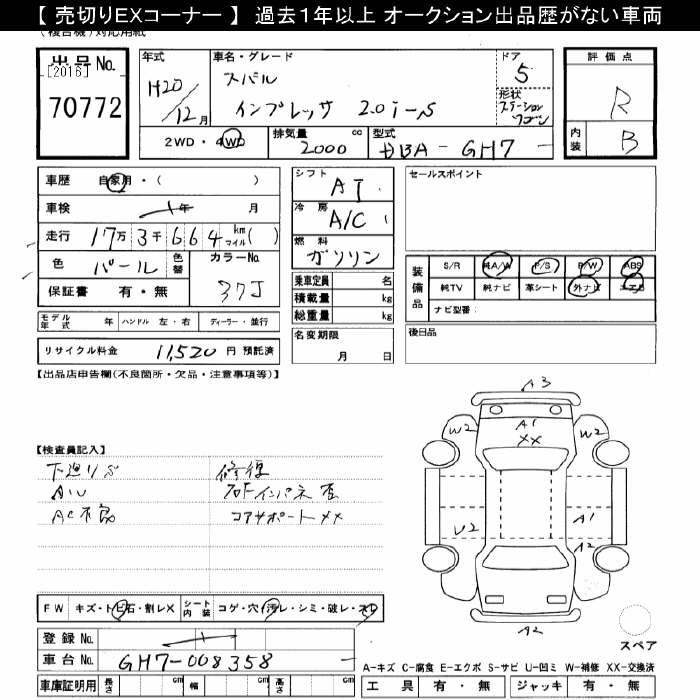 【 売切りEXコーナー 】 過去１年以上 オークション出品歴がない車両
(複合機)対応用紙
出品No. [2016] 70772
年式 H20/12月
車名・グレード スバル インプレッサ 2.0i-S
ドア 5
形状 ステーションワゴン
評価点 R
内装 B
2WD・4WD 排気量 2000 cc 型式 DBA-GH7
車歴 自家用・( )
車検 年 月
走行 17万 3千 6 6 4 km マイル ( )
色 パール 色替 カラーNo. 37J
保証書 有・無
モデル年式 年 ハンドル 左・右 ディーラー・並行
リサイクル料金 11,520 円 預託済
シフト AT
冷房 A/C
燃料 ガソリン
乗車定員 名
積載量 kg
総重量 kg
名変期限 月 日
セールスポイント
装備品 S/R 純A/W P/S P/W ABS
純TV 純ナビ 革シート 外ナビ エアB
ナビ型番：
後日品
【出品店申告欄(不良箇所・欠品・注意事項等)】
【検査員記入】
下廻りS 修復
AW
AC不良 コアサポートXX
A3
A1
XX
W2
W2
U2
A1
A2
A2
FW キズ・トビ石・割レX シート内装 コゲ・穴・汚レ・シミ・破レ・スレ
登録No.
車台No. GH7-008358
車庫証明用 長さ cm 幅 cm 高さ cm
スペア
A-キズ C-腐食 E-エクボ S-サビ U-凹ミ W-補修 XX-交換済
工具 有・無 ジャッキ 有・無